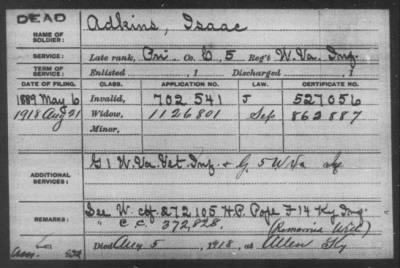 DEAD
NAME OF SOLDIER: Adkins, Isaac
SERVICE: Late rank, Pri Co. C, 5 Reg't W. Va. Inf.
TERM OF SERVICE: Enlisted , 1 Discharged , 1
DATE OF FILING. CLASS. APPLICATION NO. LAW. CERTIFICATE NO.
1889 May 6 Invalid, 702541 J 527056
1918 Aug 21 Widow, 1126801 Sep 862887
Minor,
ADDITIONAL SERVICES: G 1 W. Va. Vet. Inf. & G. 5 W Va Inf
REMARKS: See W. ctf 272105 H.P. Pope F 14 Ky Inf.
" C.C. 372,828. (Remarried Wid.)
Died Aug 5, 1918, at Allen Ky